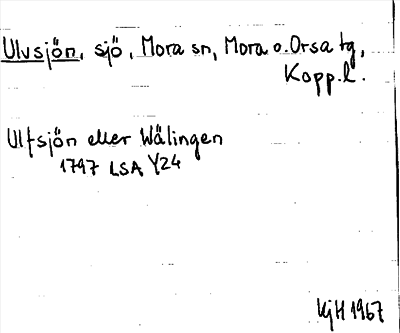 Ulvsjön, sjö, Mora sn, Mora o. Orsa tg,
Kopp. l.
Ulfsjön eller Wälingen
1797 LSA Y24
KjH 1967